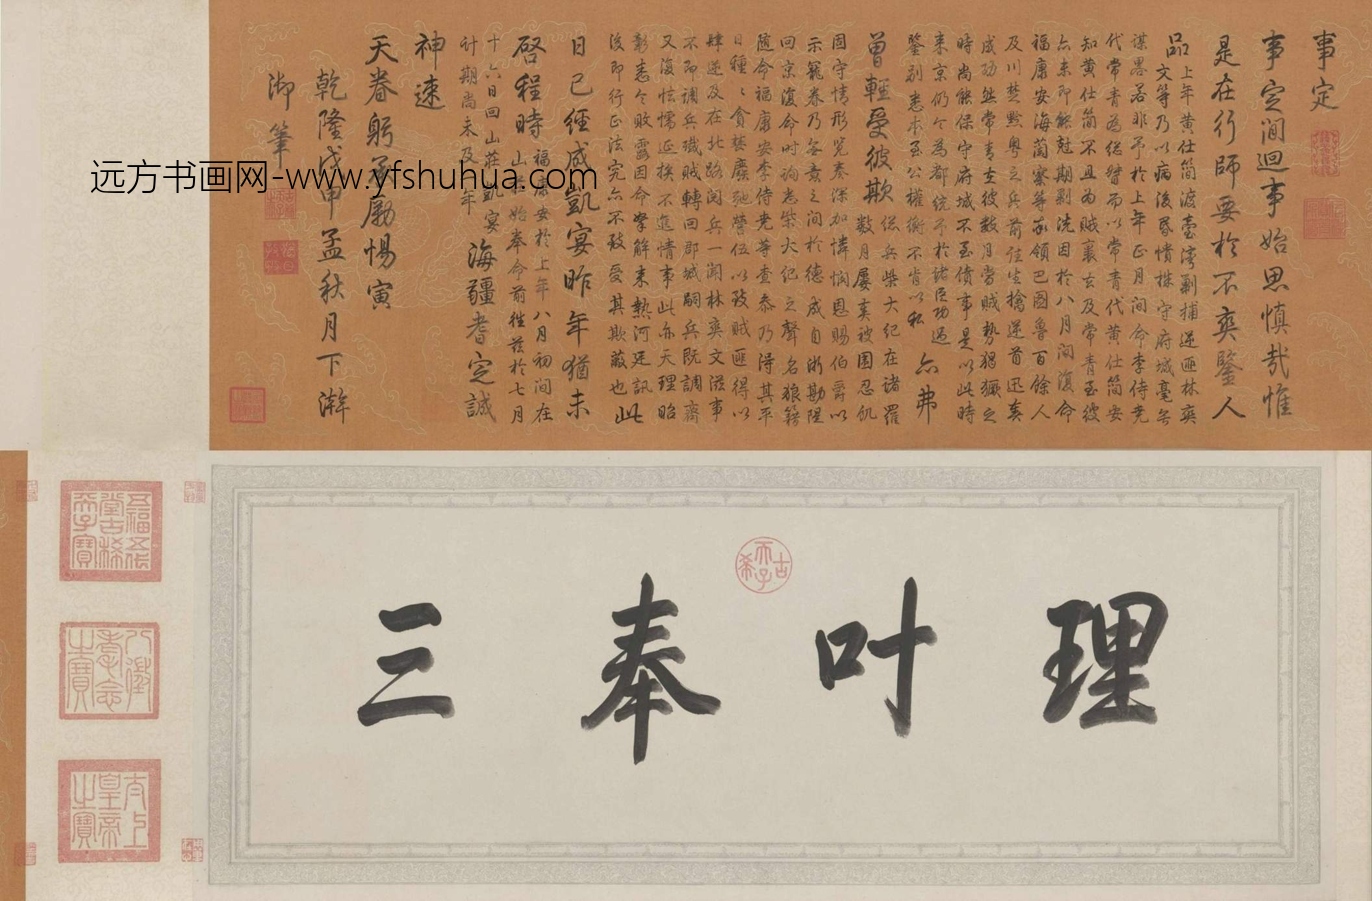 事定
事定間迴事始思慎哉惟
是在行師要於不爽鑒人
品 上年黄仕簡渡臺灣剿捕逆匪林爽
文等乃以病後昏憒株守府城毫無
謀畧若非予於上年正月間命李侍堯
代常青為總督而以常青代黄仕簡安
知黄仕簡不且為賊裹去及常青至彼
亦未即能尅期剿洗因於八月間復命
福康安海蘭察等率領巴圖魯百餘人
及川楚黔粤之兵前往生擒逆首迅奏
成功然常青在彼數月當賊勢猖獗之
時尚能保守府城不至僨事是以此時
來京仍令為都統予於諸臣功過
鑒别悉本至公權衡不肯以私 亦弗
曾輕受彼欺 總兵柴大紀在諸羅
數月屢奏被圍忍飢
固守情形覽奏深加憐憫恩賜伯爵以
示寵眷乃每責之間於德成自浙勘隄
回京復命時詢悉柴大紀之聲名狼籍
隨命福康安李侍堯等查叅乃得其平
日種種貪婪廢弛營伍以致賊匪得以
肆逆及在北路閱兵一聞林爽文滋事
不即調兵殲賊轉回郡城嗣兵既調齊
又復怯懦延挨不進情事此亦天理昭
彰悉令敗露因命拏解來熱河廷訊
後即行正法究亦不致受其欺蔽也 此
日已經咸凱宴昨年猶未
啓程時 福康安於上年八月初間在
山莊始奉命前往茲於七月
十六日回山莊凱宴
計期尚未及一年 海疆耆定誠
神速
天眷躬承勵惕寅
乾隆戊申孟秋月下澣
御筆
远方书画网-www.yfshuhua.com
理叶奉三
古希天子
五福五代堂古稀天子寶
八徵耄念之寶
太上皇帝之寶